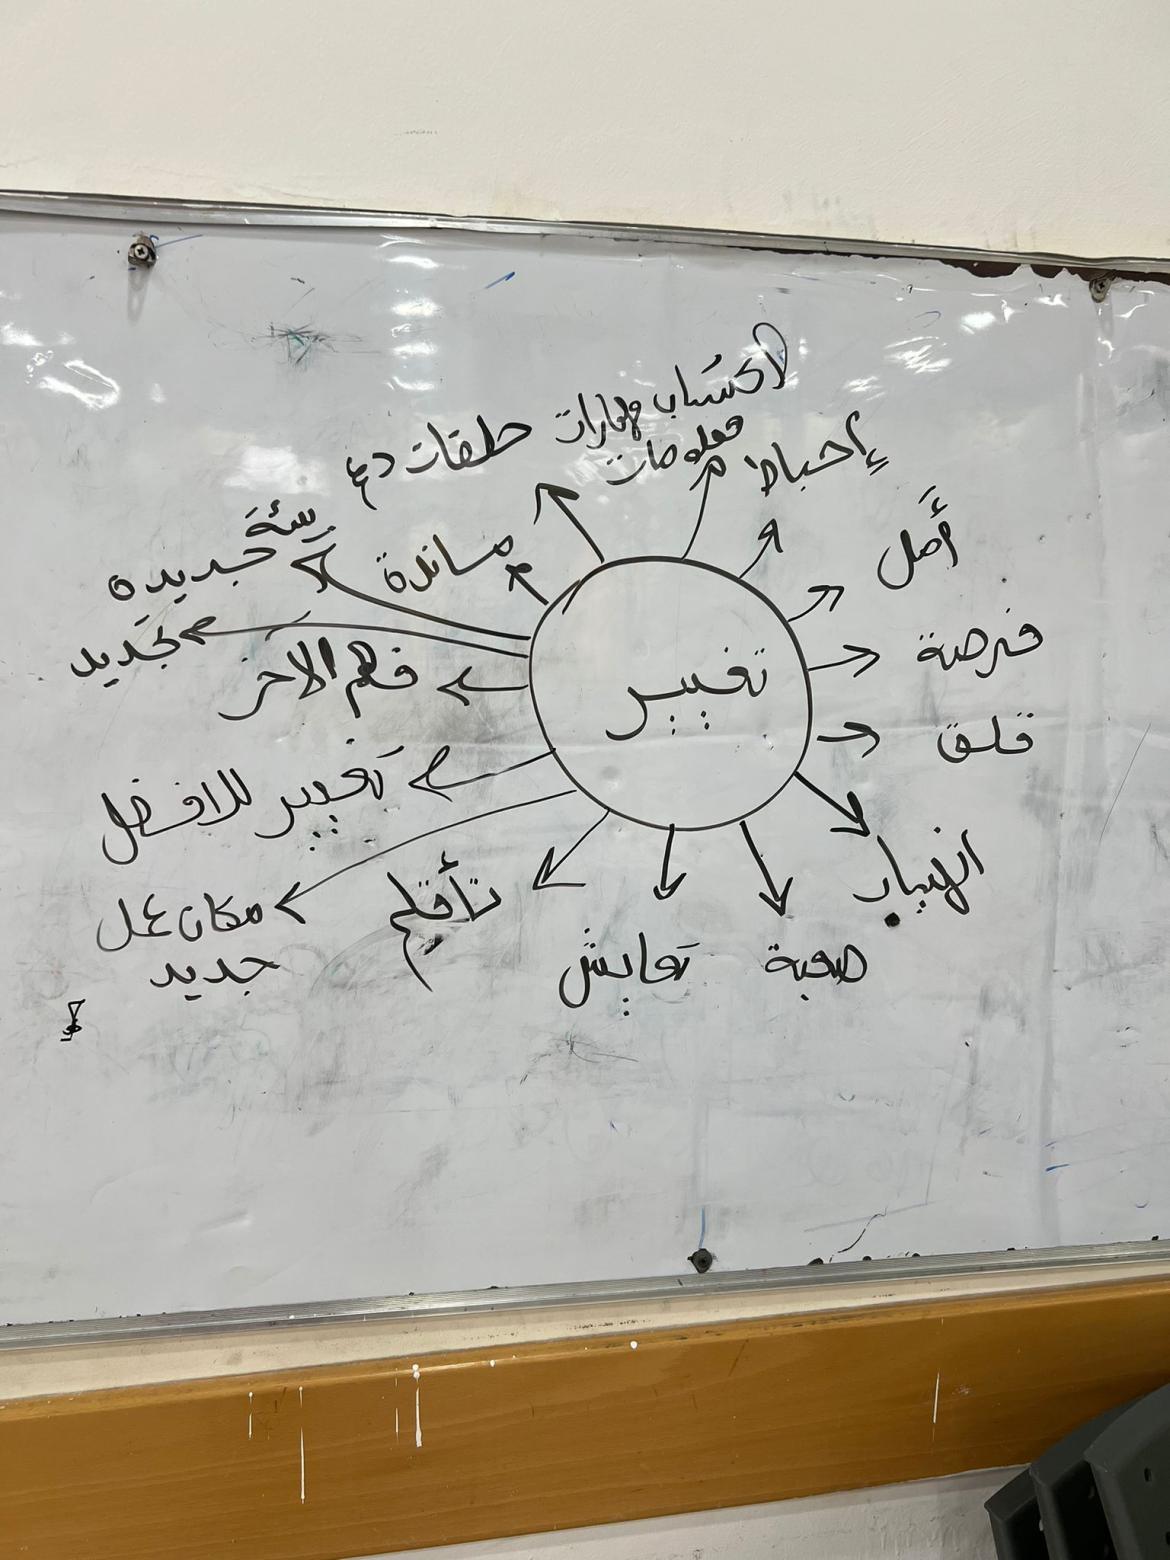 اكتساب مهارات
معلومات
حلقات دعم
إحباط
أمل
بيئة
جديدة
مساندة
فرصة
تجديد
فهم الاخر
تغيير
قلق
تغيير للافضل
انهيار
تأقلم
مكان عمل
جديد
تعايش
صعبة